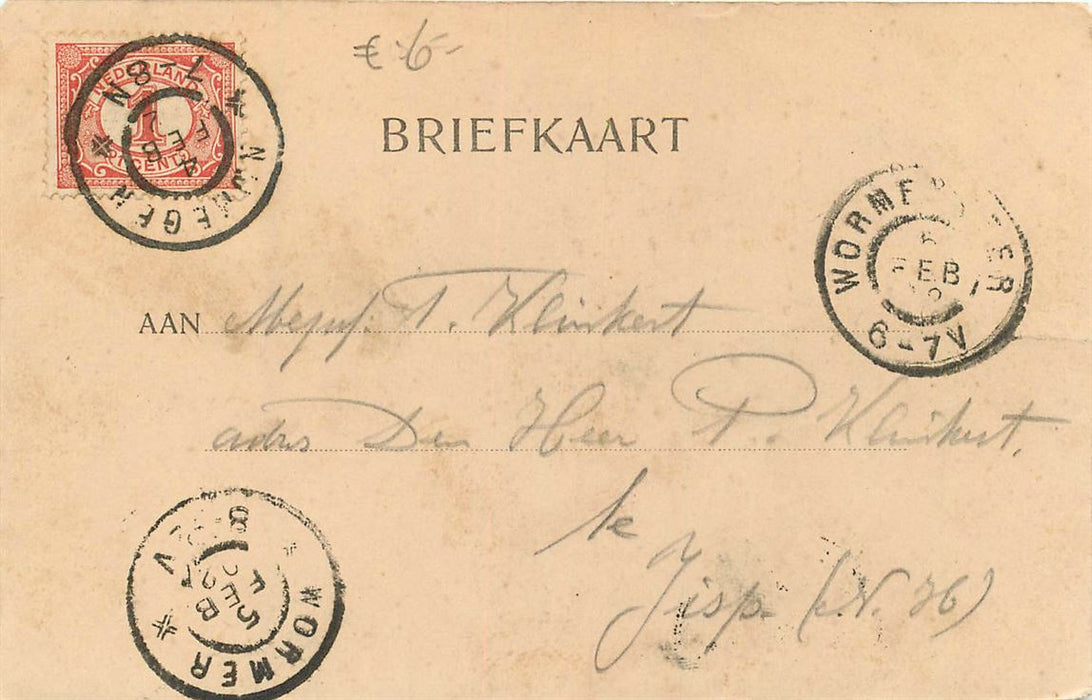 € 6-
NEDERLAND
1
CENT
NIJMEGEN
7-8N
4 FEB
BRIEFKAART
WORMERVEER
5 FEB
6-7V
AAN Mejuf. T. Klinkert
adres Den Heer P. Klinkert.
te
Jisp. (N. H.)
WORMER
5 FEB